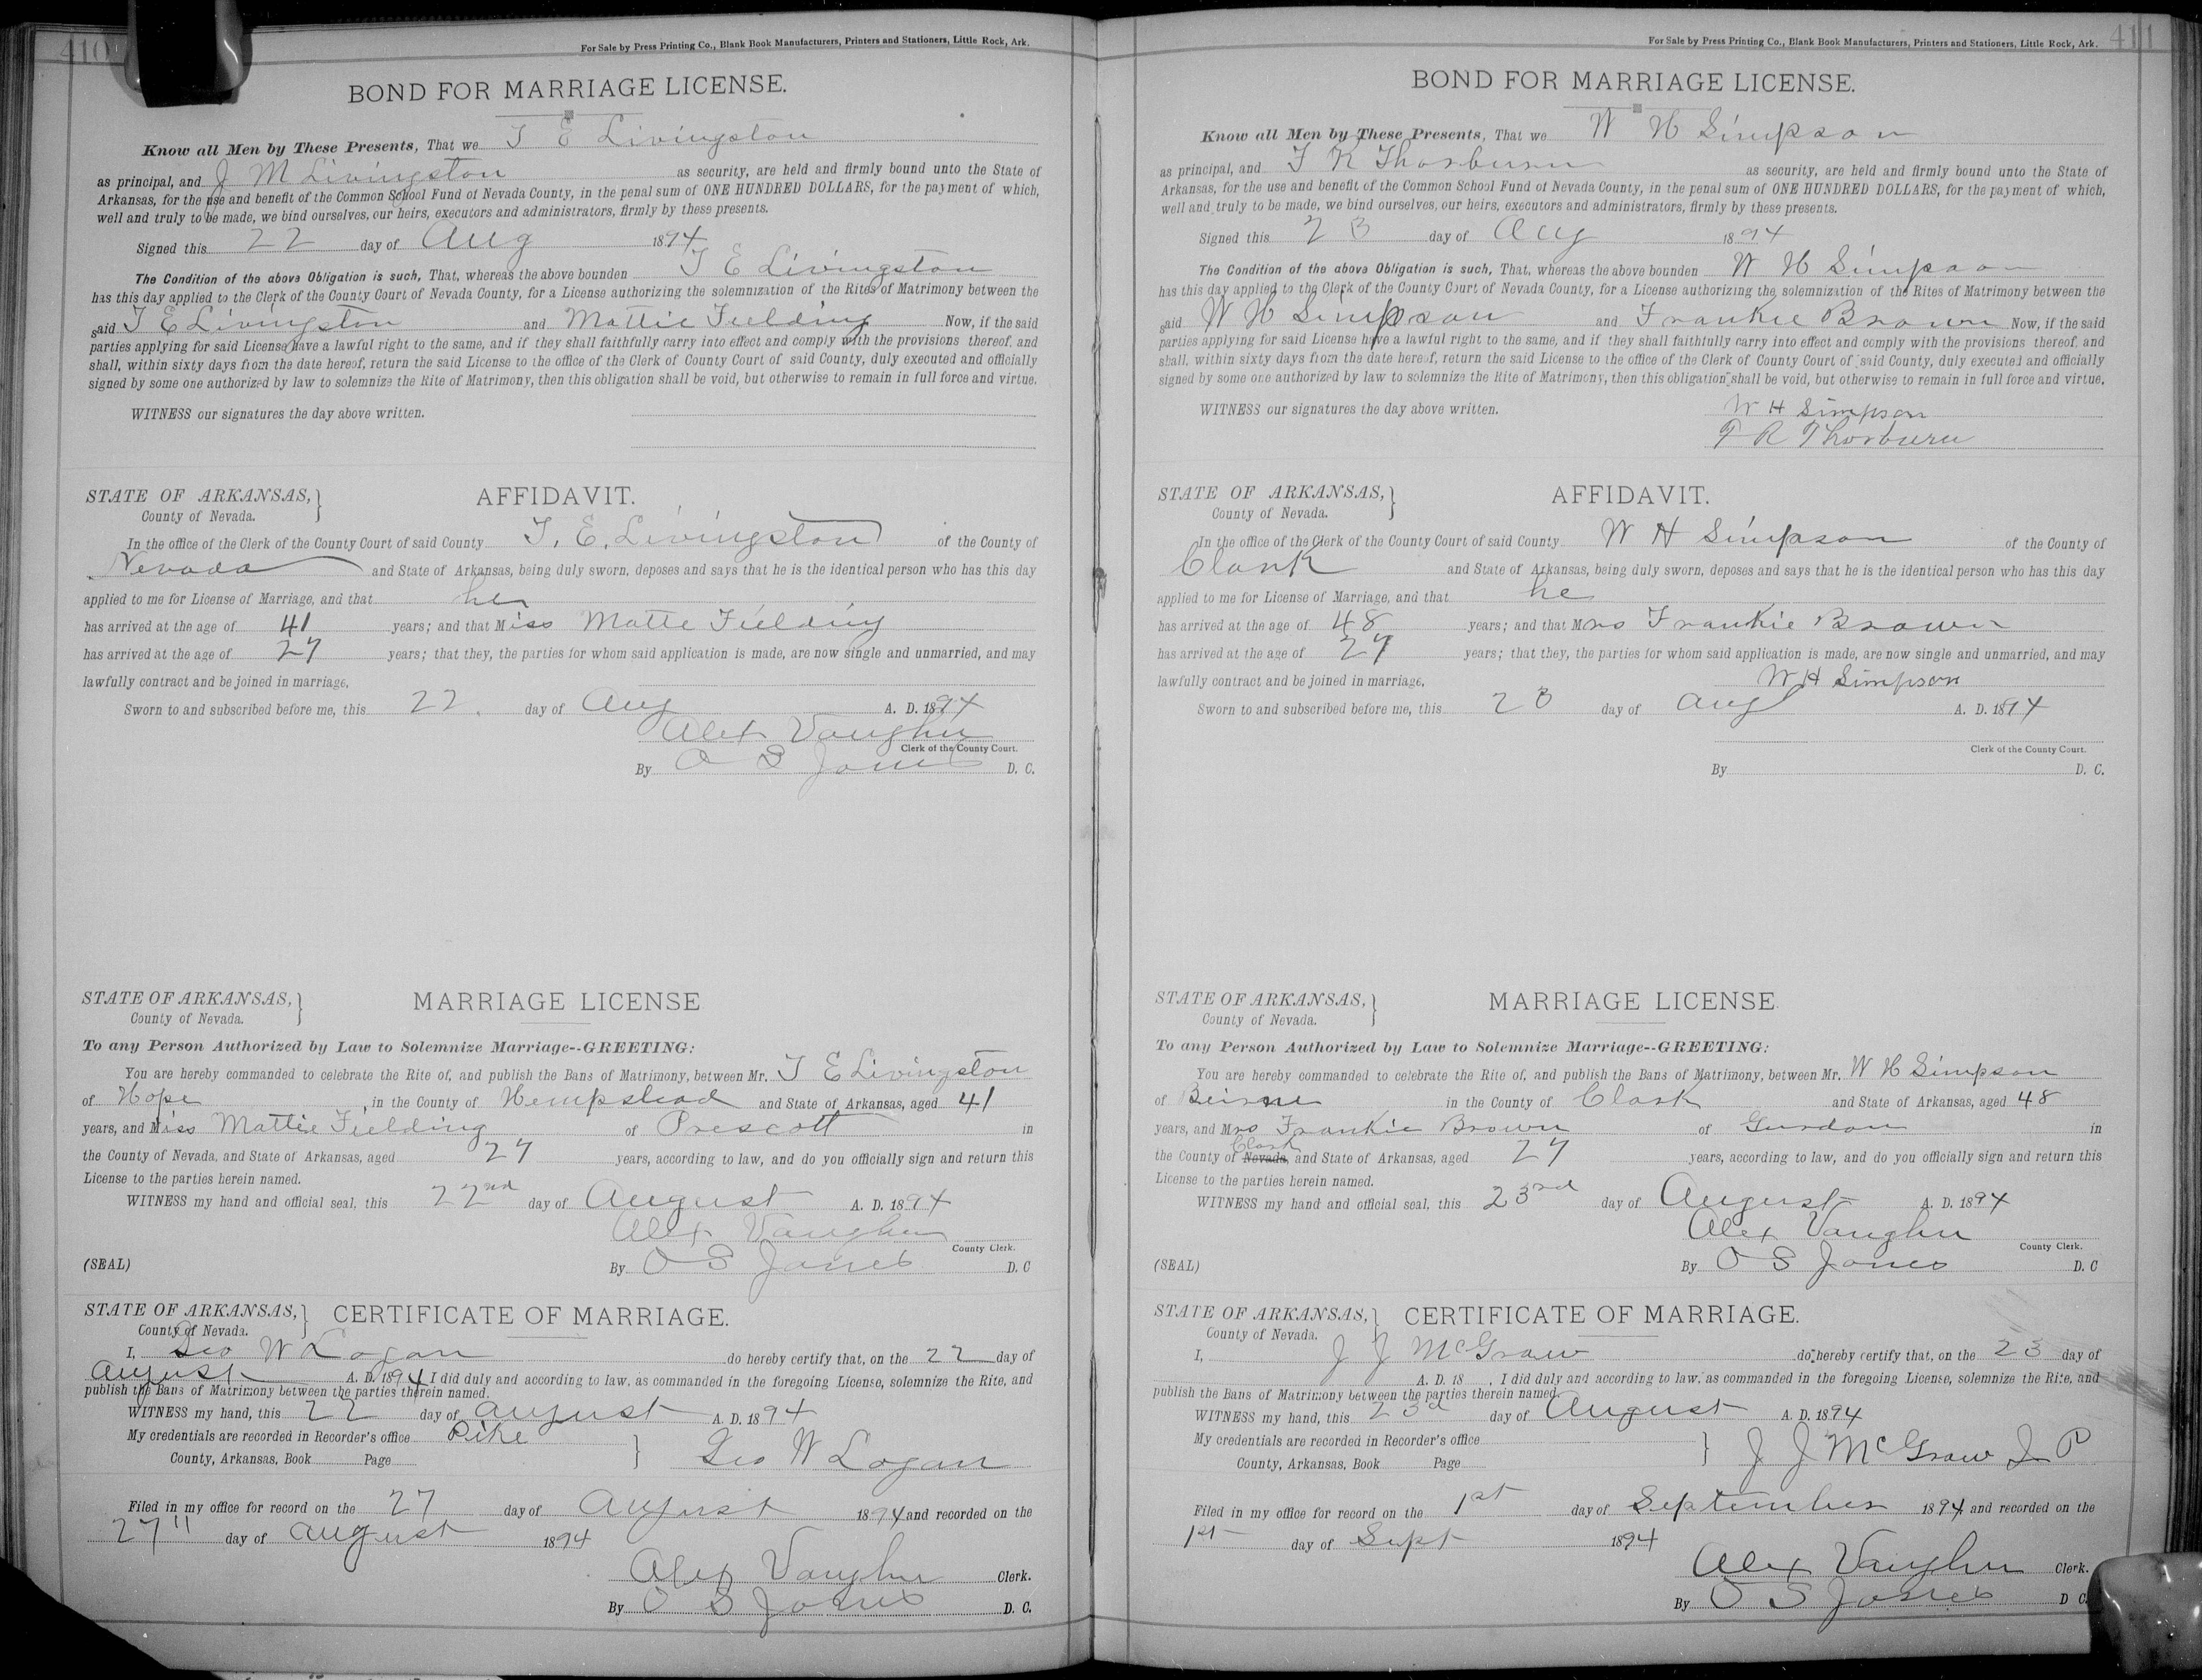 410
For Sale by Press Printing Co., Blank Book Manufacturers, Printers and Stationers, Little Rock, Ark.
BOND FOR MARRIAGE LICENSE.
Know all Men by These Presents, That we T E Livingston
as principal, and J M Livingston as security, are held and firmly bound unto the State of
Arkansas, for the use and benefit of the Common School Fund of Nevada County, in the penal sum of ONE HUNDRED DOLLARS, for the payment of which,
well and truly to be made, we bind ourselves, our heirs, executors and administrators, firmly by these presents.
Signed this 22 day of Aug 1894
The Condition of the above Obligation is such, That, whereas the above bounden T E Livingston
has this day applied to the Clerk of the County Court of Nevada County, for a License authorizing the solemnization of the Rites of Matrimony between the
said T E Livingston and Mattie Fielding Now, if the said
parties applying for said License have a lawful right to the same, and if they shall faithfully carry into effect and comply with the provisions thereof, and
shall, within sixty days from the date hereof, return the said License to the office of the Clerk of County Court of said County, duly executed and officially
signed by some one authorized by law to solemnize the Rite of Matrimony, then this obligation shall be void, but otherwise to remain in full force and virtue.
WITNESS our signatures the day above written.
STATE OF ARKANSAS, }
County of Nevada.
AFFIDAVIT.
In the office of the Clerk of the County Court of said County T. E. Livingston of the County of
Nevada and State of Arkansas, being duly sworn, deposes and says that he is the identical person who has this day
applied to me for License of Marriage, and that he
has arrived at the age of 41 years; and that Miss Matte Fielding
has arrived at the age of 27 years; that they, the parties for whom said application is made, are now single and unmarried, and may
lawfully contract and be joined in marriage.
Sworn to and subscribed before me, this 22. day of Aug A. D. 1894
Alex Vaughn
Clerk of the County Court.
By O S Jones D. C.
STATE OF ARKANSAS, }
County of Nevada.
MARRIAGE LICENSE
To any Person Authorized by Law to Solemnize Marriage--GREETING:
You are hereby commanded to celebrate the Rite of, and publish the Bans of Matrimony, between Mr. T E Livingston
of Hope, in the County of Hempstead and State of Arkansas, aged 41
years, and Miss Mattie Fielding of Prescott in
the County of Nevada, and State of Arkansas, aged 27 years, according to law, and do you officially sign and return this
License to the parties herein named.
WITNESS my hand and official seal, this 22nd day of August A. D. 1894
Alex Vaughn
County Clerk.
(SEAL) By O S Jones D. C
STATE OF ARKANSAS, }
County of Nevada.
CERTIFICATE OF MARRIAGE.
I, Geo W Logan do hereby certify that, on the 22 day of
August A. D. 1894 I did duly and according to law, as commanded in the foregoing License, solemnize the Rite, and
publish the Bans of Matrimony between the parties therein named.
WITNESS my hand, this 22 day of August A. D. 1894
My credentials are recorded in Recorder's office Pike
County, Arkansas, Book Page } Geo W Logan
Filed in my office for record on the 27 day of August 1894 and recorded on the
27" day of August 1894
Alex Vaughn Clerk.
By O S Jones D. C.
411
For Sale by Press Printing Co., Blank Book Manufacturers, Printers and Stationers, Little Rock, Ark.
BOND FOR MARRIAGE LICENSE.
Know all Men by These Presents, That we W H Simpson
as principal, and T R Thorburn as security, are held and firmly bound unto the State of
Arkansas, for the use and benefit of the Common School Fund of Nevada County, in the penal sum of ONE HUNDRED DOLLARS, for the payment of which,
well and truly to be made, we bind ourselves, our heirs, executors and administrators, firmly by these presents.
Signed this 23 day of Aug 1894
The Condition of the above Obligation is such, That, whereas the above bounden W H Simpson
has this day applied to the Clerk of the County Court of Nevada County, for a License authorizing the solemnization of the Rites of Matrimony between the
said W H Simpson and Frankie Brown Now, if the said
parties applying for said License have a lawful right to the same, and if they shall faithfully carry into effect and comply with the provisions thereof, and
shall, within sixty days from the date hereof, return the said License to the office of the Clerk of County Court of said County, duly executed and officially
signed by some one authorized by law to solemnize the Rite of Matrimony, then this obligation shall be void, but otherwise to remain in full force and virtue.
WITNESS our signatures the day above written.
W H Simpson
T R Thorburn
STATE OF ARKANSAS, }
County of Nevada.
AFFIDAVIT.
In the office of the Clerk of the County Court of said County W H Simpson of the County of
Clark and State of Arkansas, being duly sworn, deposes and says that he is the identical person who has this day
applied to me for License of Marriage, and that he
has arrived at the age of 48 years; and that Mrs Frankie Brown
has arrived at the age of 27 years; that they, the parties for whom said application is made, are now single and unmarried, and may
lawfully contract and be joined in marriage.
W H Simpson
Sworn to and subscribed before me, this 23 day of Aug A. D. 1894
Clerk of the County Court.
By D. C.
STATE OF ARKANSAS, }
County of Nevada.
MARRIAGE LICENSE.
To any Person Authorized by Law to Solemnize Marriage--GREETING:
You are hereby commanded to celebrate the Rite of, and publish the Bans of Matrimony, between Mr. W H Simpson
of Beirne in the County of Clark and State of Arkansas, aged 48
years, and Mrs Frankie Brown of Gurdon in
Clark
the County of Nevada, and State of Arkansas, aged 27 years, according to law, and do you officially sign and return this
License to the parties herein named.
WITNESS my hand and official seal, this 23rd day of August A. D. 1894
Alex Vaughn
County Clerk.
(SEAL) By O S Jones D. C
STATE OF ARKANSAS, }
County of Nevada.
CERTIFICATE OF MARRIAGE.
I, J J McGraw do hereby certify that, on the 23 day of
A. D. 18 , I did duly and according to law, as commanded in the foregoing License, solemnize the Rite, and
publish the Bans of Matrimony between the parties therein named.
WITNESS my hand, this 23d day of August A. D. 1894
My credentials are recorded in Recorder's office
County, Arkansas, Book Page } J J McGraw J P
Filed in my office for record on the 1st day of September 1894 and recorded on the
1st day of Sept 1894
Alex Vaughn Clerk.
By O S Jones D C.